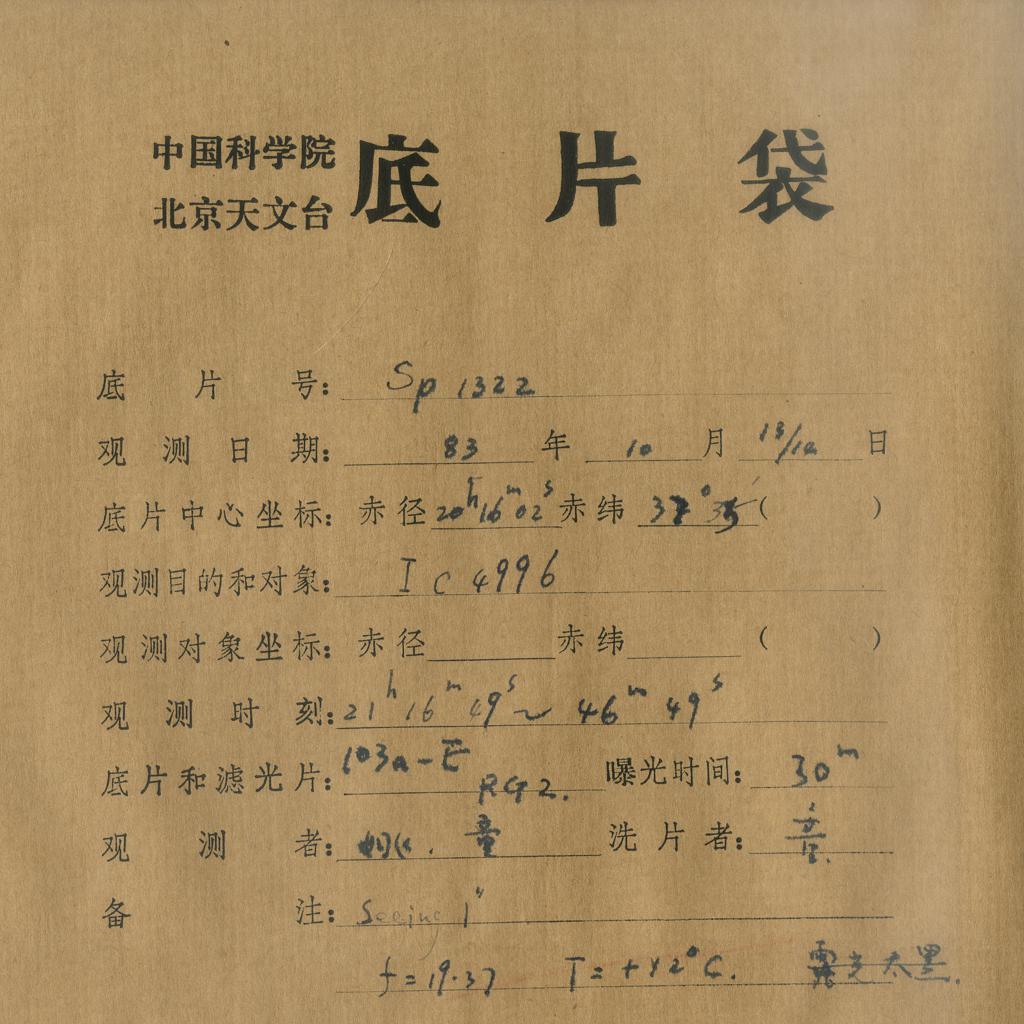 中国科学院
北京天文台
底片袋
底片号: Sp 1322
观测日期: 83 年 10 月 13/14 日
底片中心坐标: 赤径 20h 16m 02s 赤纬 37° 35′ ( )
观测目的和对象: IC 4996
观测对象坐标: 赤径 赤纬 ( )
观测时刻: 21h 16m 49s ~ 46m 49s
底片和滤光片: 103a-E RG2. 曝光时间: 30m
观测者: 童 洗片者:
备注: Seeing 1"
f=19.37 T=+12°C. 露光太黑.